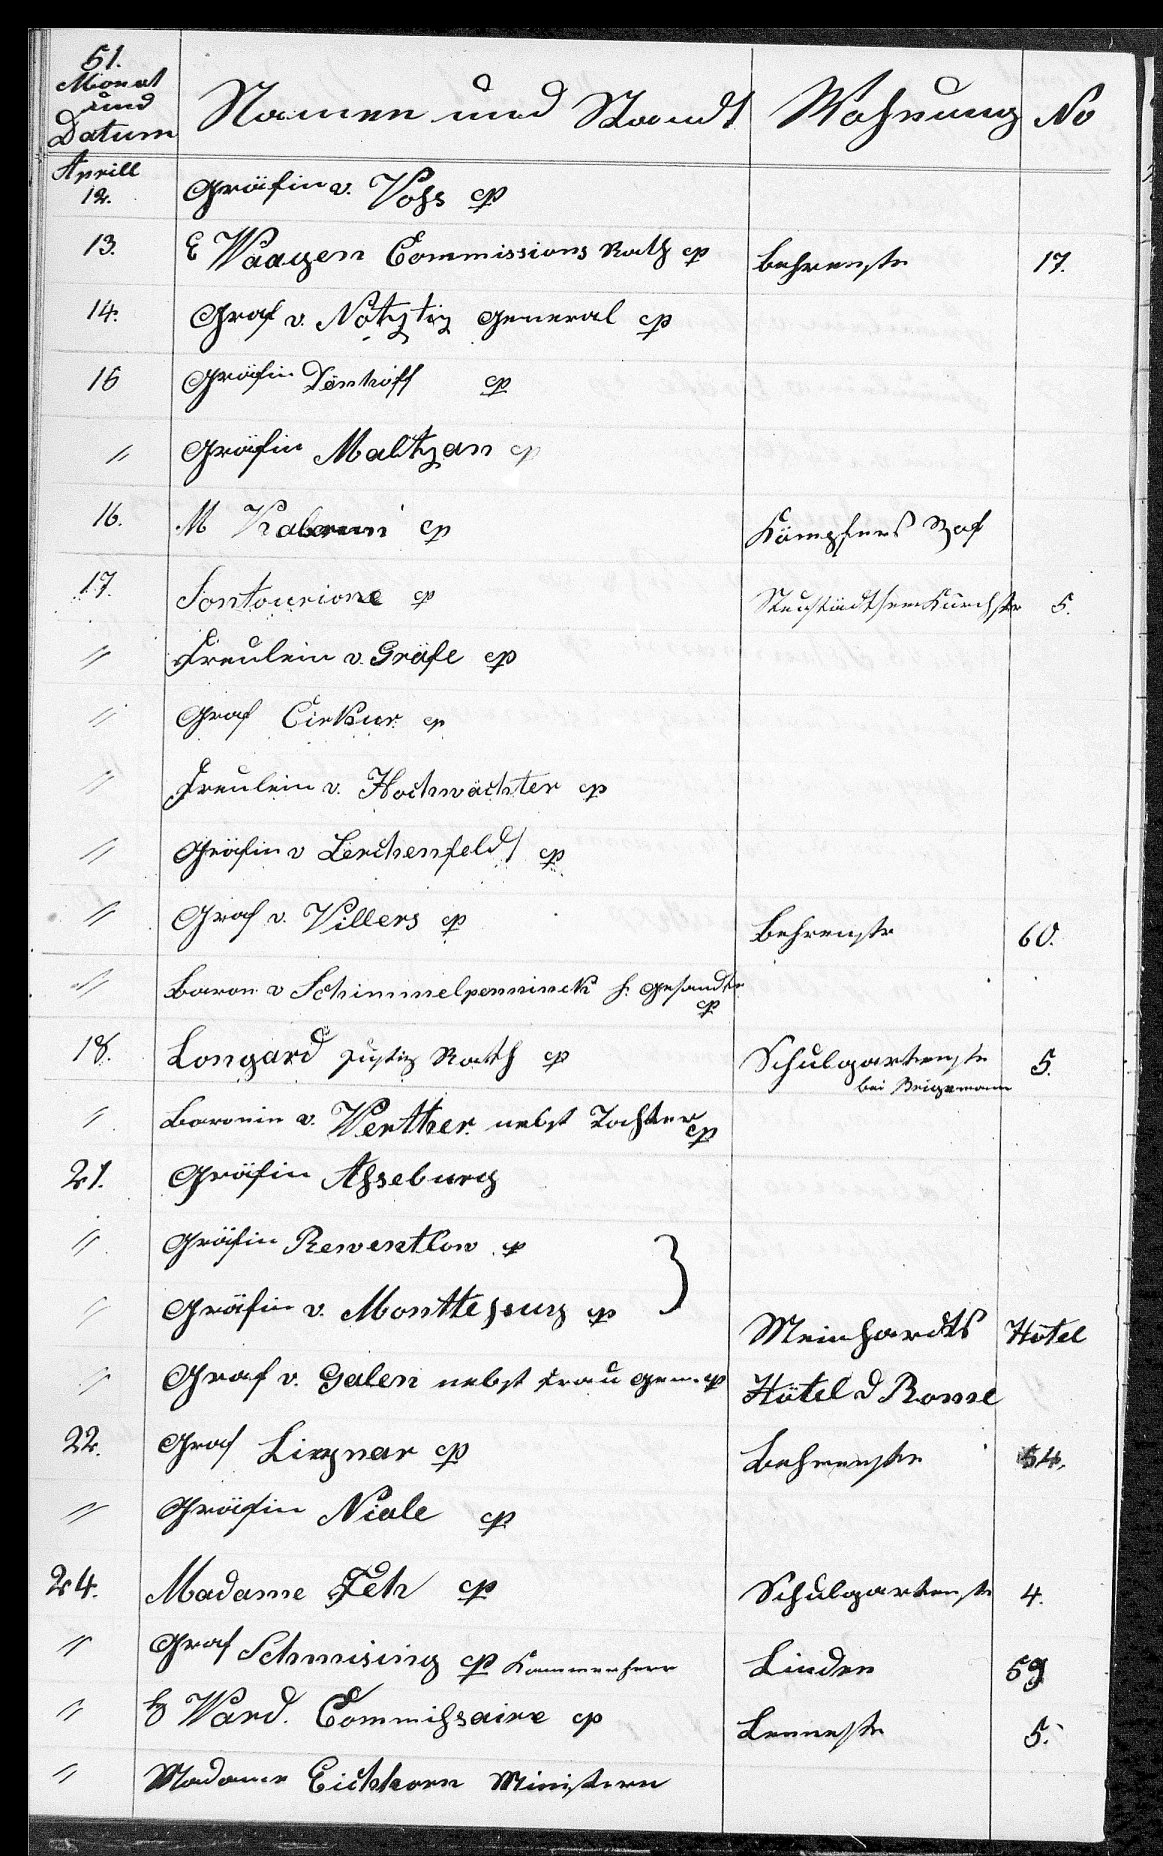 51.
Monat
und
Datum
Namen und Standt Wohnung No
Aprill
12. Gräfin v. Vohs cp
13. E Waagen Commissions Rath cp Behrenstr 17.
14. Graf v. Nötztiz General cp
16 Gräfin Dönhoff cp
" Gräfin Maltzan cp
16. M cp Kämpfers Hof
17. Sontourione cp Neustädtschen Kirchstr 5.
" Freulein v. Gräfe cp
" Graf Cirkur cp
" Freulein v. Hochwächter cp
" Gräfin v Lerchenfeldt cp
" Graf v. Villers cp Behrenstr 60.
" Baron v Schimmelpenninck h. Gesandter
cp
18. Longard Justiz Rath cp Schulgartenstr 5.
bei
" Baronin v. Werther nebst Tochter cp
21. Gräfin Ahseburg
" Gräfin Rewentlow cp
" Gräfin v. cp Meinhardts Hôtel
" Graf v. Galen nebst Frau Gem. cp Hôtel d Rome
22. Graf Liegnar cp Behrenstr 54.
" Gräfin Niale cp
24. Madame Feh cp Schulgartenstr 4.
" Graf Schmising cp Kammerherr Linden 59
" Ward. Commihsaire cp Lennestr 5.
" Madame Eichhorn Ministern